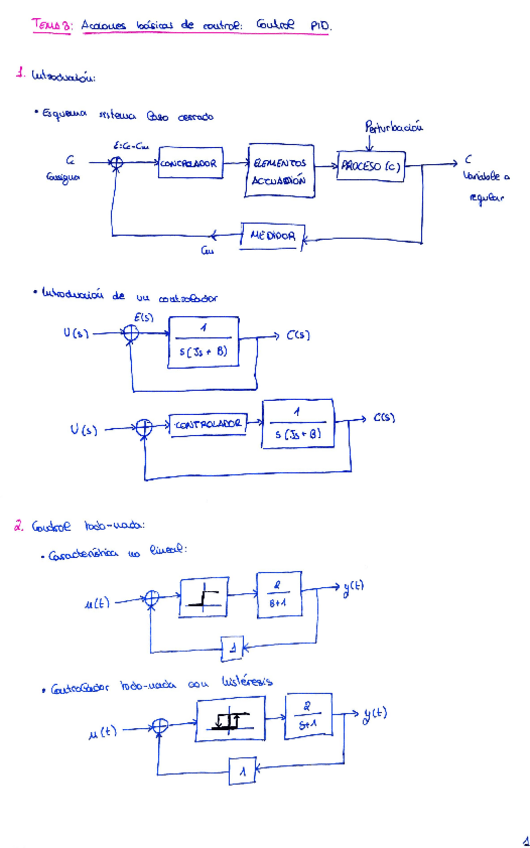 TEMA 3: Acciones básicas de control: Control PID.
1. Introducción:
• Esquema sistema lazo cerrado
Perturbación
E=Cc-Cm
Cc
Consigna
CONTROLADOR
ELEMENTOS
ACTUACIÓN
PROCESO (C)
C
Variable a
regular
MEDIDOR
Cm
• Introducción de un controlador
E(s)
U(s)
1
s(Js + B)
C(s)
U(s)
CONTROLADOR
1
s(Js + B)
C(s)
2. Control todo-nada:
• Característica no lineal:
u(t)
2
s+1
y(t)
1
• Controlador todo-nada con histéresis
u(t)
2
s+1
y(t)
1
1